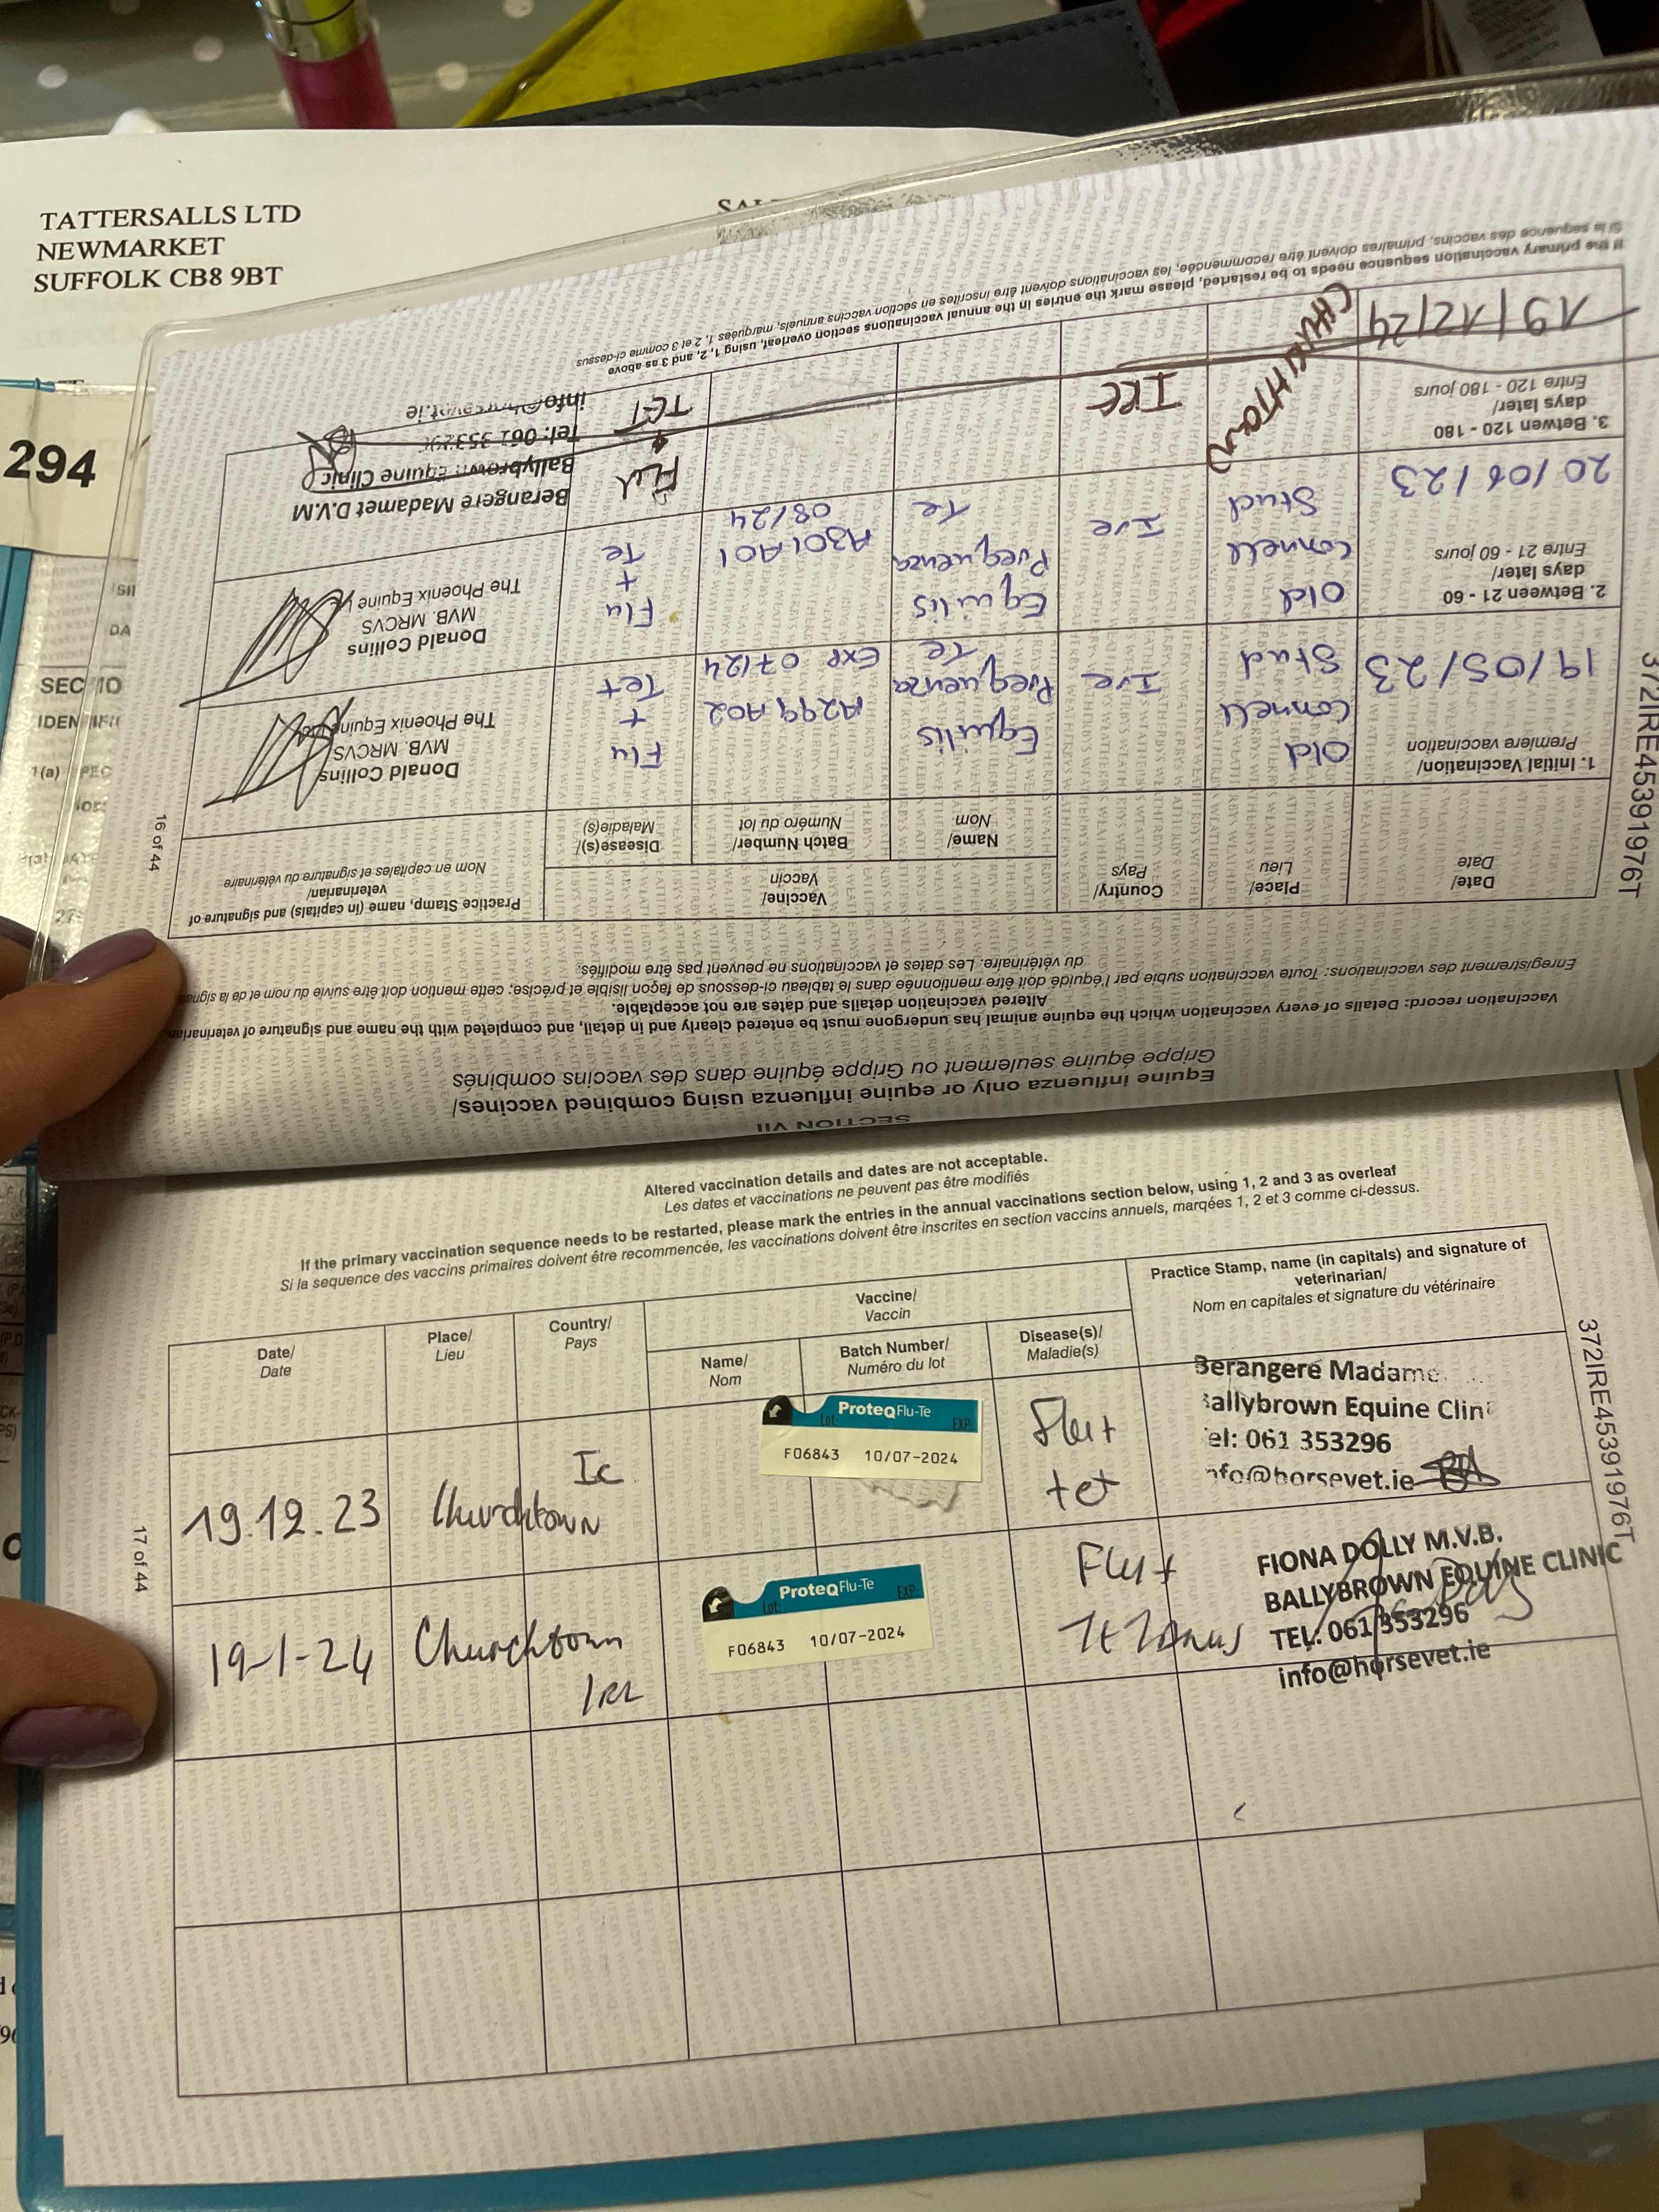 TATTERSALLS LTD
NEWMARKET
SUFFOLK CB8 9BT
294
SEC IO
IDENTIFI
16 of 44
372IRE45391976T
SECTION VII
Equine influenza only or equine influenza using combined vaccines/
Grippe équine seulement ou Grippe équine dans des vaccins combinés
Vaccination record: Details of every vaccination which the equine animal has undergone must be entered clearly and in detail, and completed with the name and signature of veterinarian.
Altered vaccination details and dates are not acceptable.
Enregistrement des vaccinations: Toute vaccination subie par l'équidé doit être mentionnée dans le tableau ci-dessous de façon lisible et précise; cette mention doit être suivie du nom et de la
du vétérinaire. Les dates et vaccinations ne peuvent pas être modifiés.
Date/
Date
Place/
Lieu
Country/
Pays
Vaccine/
Vaccin
Name/
Nom
Batch Number/
Numéro du lot
Disease(s)/
Maladie(s)
Practice Stamp, name (in capitals) and signature of
veterinarian/
Nom en capitales et signature du vétérinaire
1. Initial Vaccination/
Première vaccination
19/05/23
Old
Connell
Stud
Ire
Equilis
Prequenza
Te
A299A02
Exp 07/24
Flu
+
Tet
Donald Collins
MVB. MRCVS
The Phoenix Equine
2. Between 21 - 60
days later/
Entre 21 - 60 jours
20/06/23
Old
Connell
Stud
Ire
Equilis
Prequenza
Te
A301A01
08/24
Flu
+
Te
Donald Collins
MVB. MRCVS
The Phoenix Equine
3. Betwen 120 - 180
days later/
Entre 120 - 180 jours
19/12/24
CHURCHTOWN
IRE
FLU
+
TET
Berangere Madamet D.V.M
Ballybrown Equine Clinic
Tel: 061 35329
info@horsevet.ie
If the primary vaccination sequence needs to be restarted, please mark the entries in the annual vaccinations section overleaf, using 1, 2, and 3 as above
Si la sequence des vaccins, primaires doivent être recommencée, les vaccinations doivent être inscrites en section vaccins annuels, marquées 1, 2 et 3 comme ci-dessus
Altered vaccination details and dates are not acceptable.
Les dates et vaccinations ne peuvent pas être modifiés
If the primary vaccination sequence needs to be restarted, please mark the entries in the annual vaccinations section below, using 1, 2 and 3 as overleaf
Si la sequence des vaccins primaires doivent être recommencée, les vaccinations doivent être inscrites en section vaccins annuels, marqées 1, 2 et 3 comme ci-dessus.
Date/
Date
Place/
Lieu
Country/
Pays
Vaccine/
Vaccin
Name/
Nom
Batch Number/
Numéro du lot
Disease(s)/
Maladie(s)
Practice Stamp, name (in capitals) and signature of
veterinarian/
Nom en capitales et signature du vétérinaire
19.12.23
Churchtown
ProteqFlu-Te
Lot: EXP:
F06843 10/07-2024
Flu +
tet
Berangere Madame
Ballybrown Equine Clini
el: 061 353296
nfo@horsevet.ie
19-1-24
Churchtown
IRL
ProteqFlu-Te
Lot: EXP:
F06843 10/07-2024
Flu +
Tetanus
FIONA DOLLY M.V.B.
BALLYBROWN EQUINE CLINIC
TEL: 061 353296
info@horsevet.ie
17 of 44
372IRE45391976T